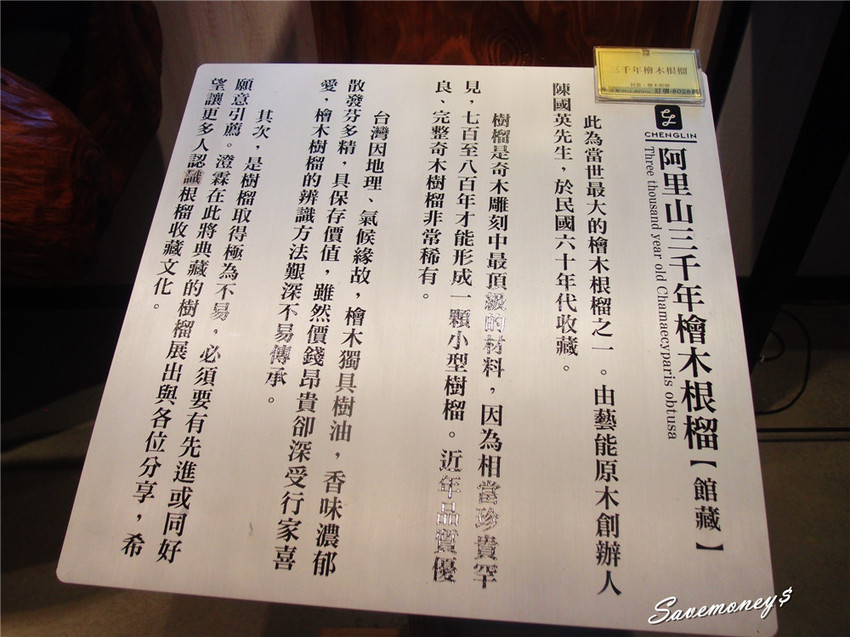 三千年檜木根榴
CHENGLIN
阿里山三千年檜木根榴【館藏】
Three thousand year old Chamaecyparis obtusa
此為當世最大的檜木根榴之一。由藝能原木創辦人
陳國英先生，於民國六十年代收藏。
樹榴是奇木雕刻中最頂級的材料，因為相當珍貴罕
見，七百至八百年才能形成一顆小型樹榴。近年品質優
良、完整奇木樹榴非常稀有。
台灣因地理、氣候緣故，檜木獨具樹油，香味濃郁
散發芬多精，具保存價值，雖然價錢昂貴卻深受行家喜
愛，檜木樹榴的辨識方法艱深不易傳承。
其次，是樹榴取得極為不易，必須要有先進或同好
願意引薦。澄霖在此將典藏的樹榴展出與各位分享，希
望讓更多人認識根榴收藏文化。
Savemoney$